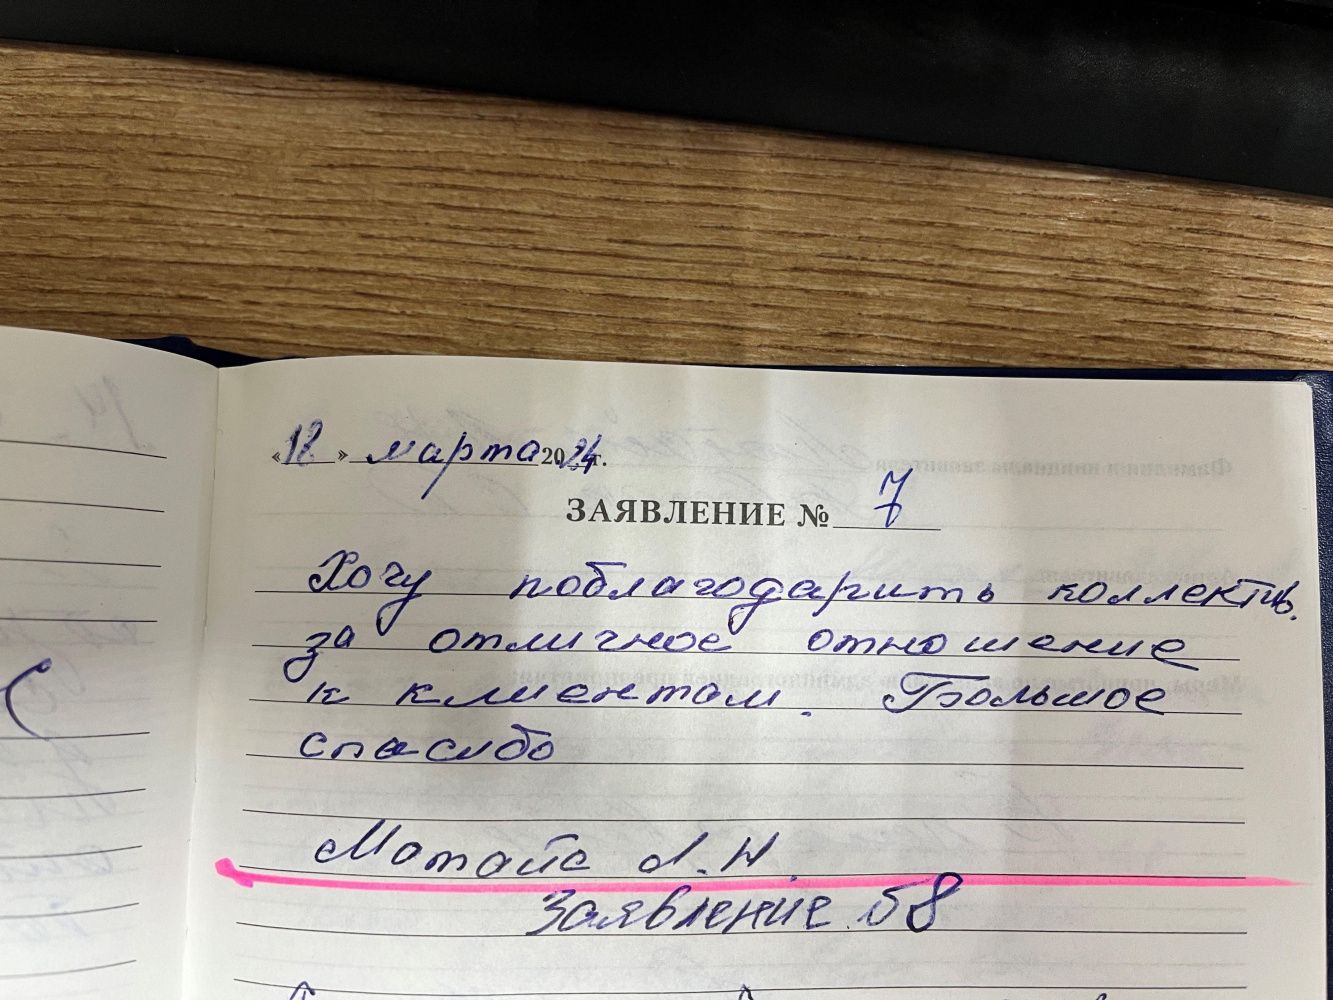 «18» марта 2024г.
ЗАЯВЛЕНИЕ № 7
Хочу поблагодарить коллектив.
за отличное отношение
к клиентам. Большое
спасибо
Заявление 58